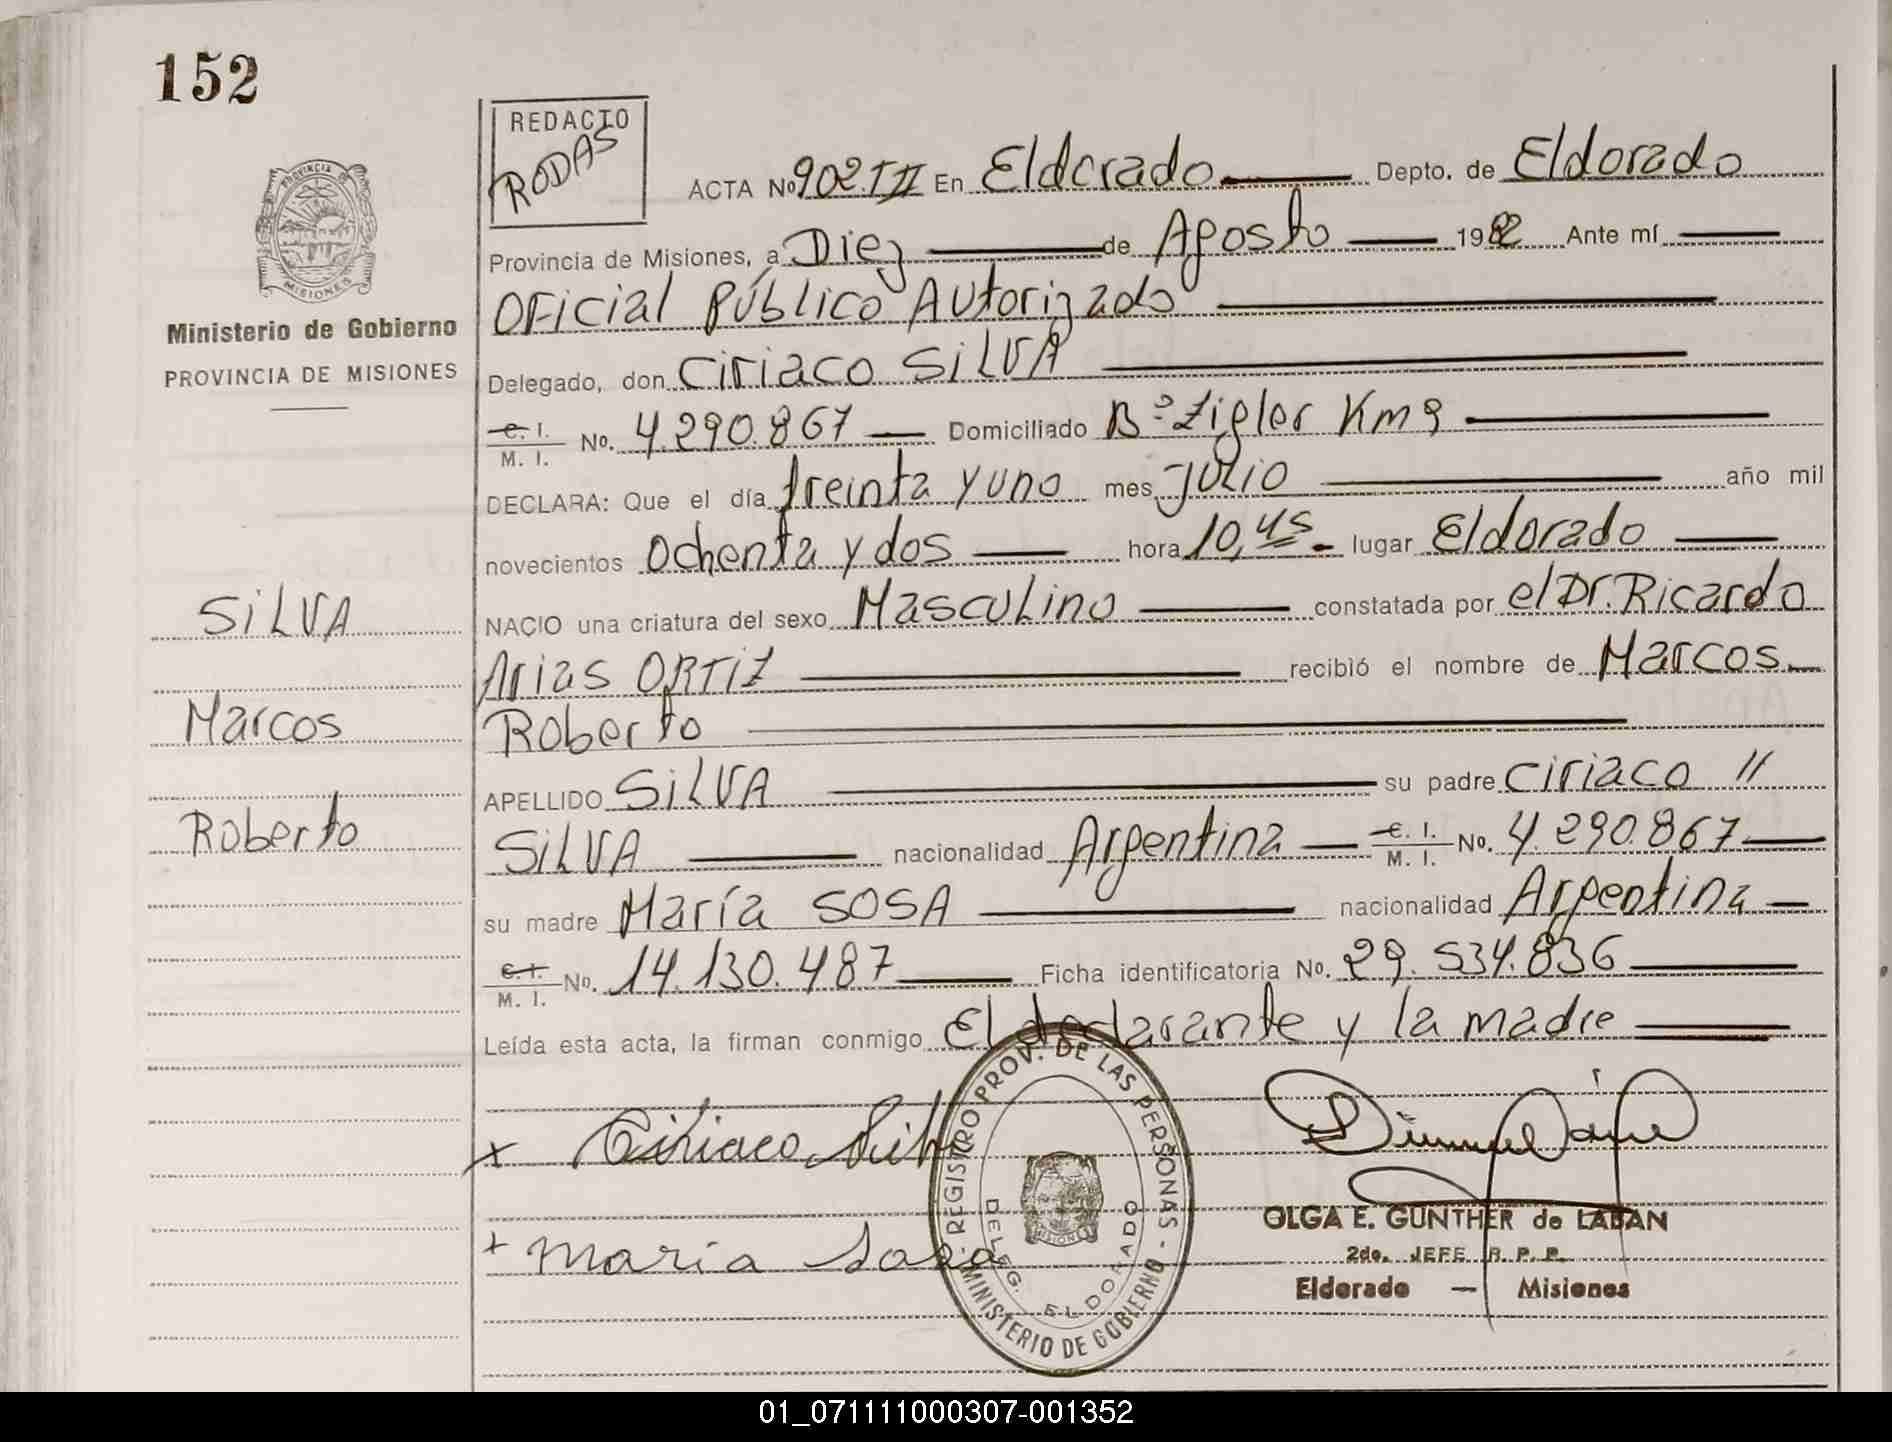 152
REDACTO
RODAS
ACTA No 902.T II En Eldorado Depto. de Eldorado
Provincia de Misiones, a Diez de Agosto 1982 Ante mí
Oficial Público Autorizado
PROVINCIA DE
MISIONES
Ministerio de Gobierno
PROVINCIA DE MISIONES
Delegado, don Ciriaco SILVA
C. I. / M. I. No. 4.290.867 Domiciliado Bº Zigler Km 9
DECLARA: Que el día treinta y uno mes Julio año mil
novecientos Ochenta y dos hora 10,45 lugar Eldorado
SILVA
NACIO una criatura del sexo Masculino constatada por el Dr. Ricardo
Arias ORTIZ recibió el nombre de Marcos
Marcos
Roberto
APELLIDO SILVA su padre Ciriaco //
Roberto
SILVA nacionalidad Argentina C. I. / M. I. No. 4.290.867
su madre María SOSA nacionalidad Argentina
C. I. / M. I. No. 14.130.487 Ficha identificatoria No. 29.534.836
Leída esta acta, la firman conmigo El declarante y la madre
x Ciriaco Silva
+ Maria Sosa
REGISTRO PROV. DE LAS PERSONAS - MINISTERIO DE GOBIERNO -
DELEG. ELDORADO
MISIONES
OLGA E. GUNTHER de LABAN
2do. JEFE R. P. P.
Eldorado — Misiones
01_071111000307-001352